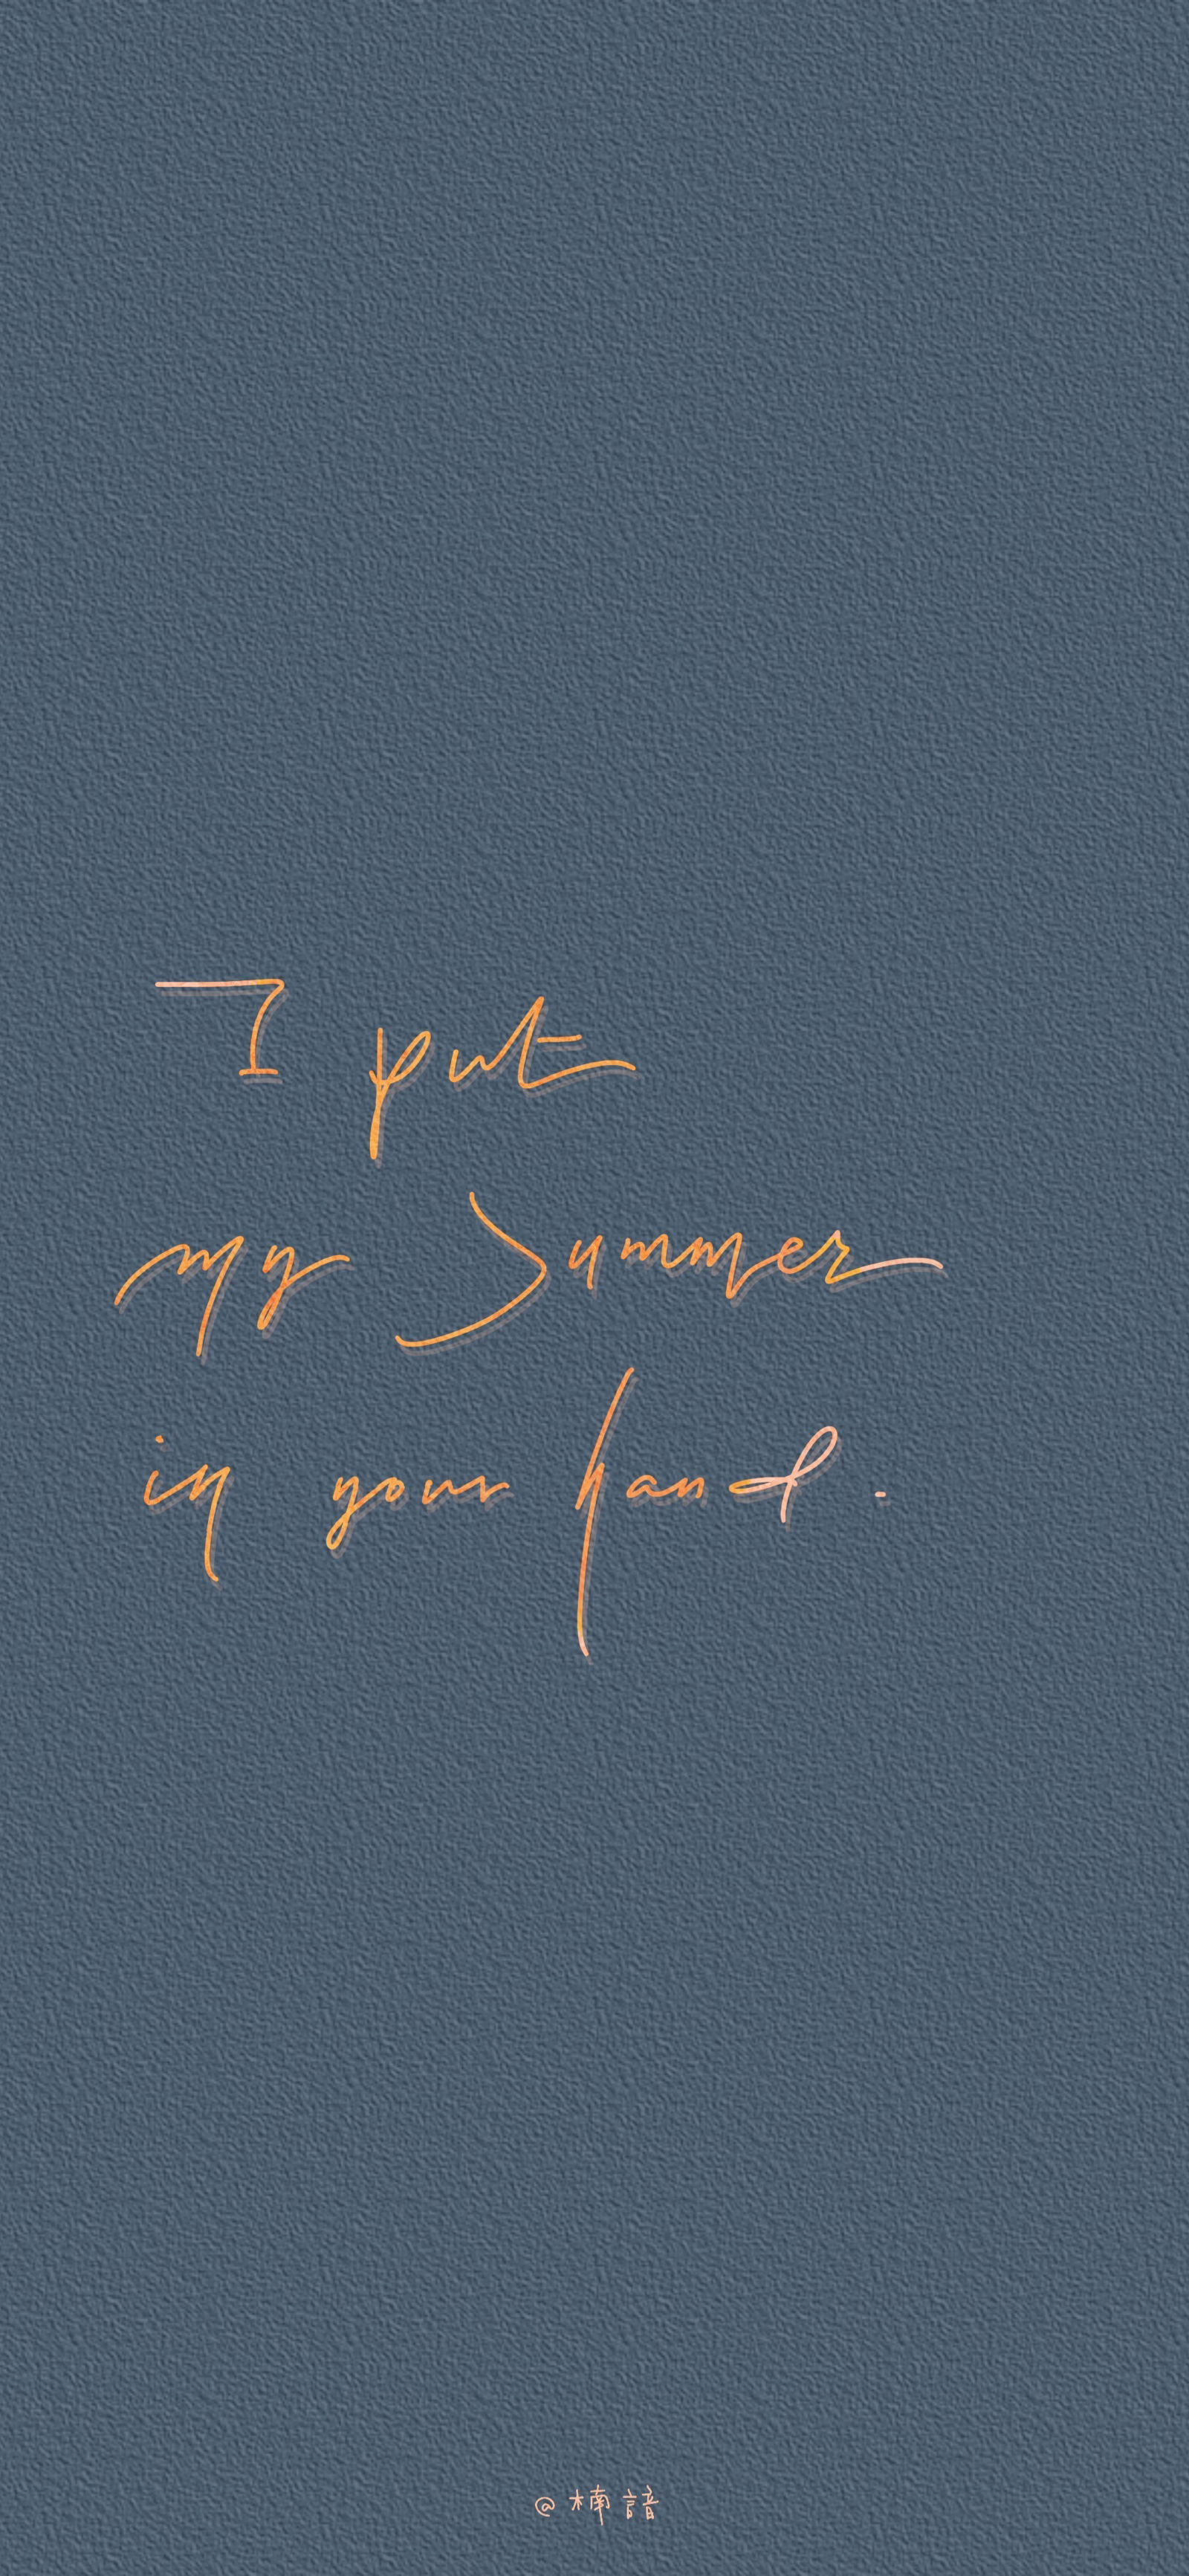 I put
my Summer
in your hand.
@楠諳